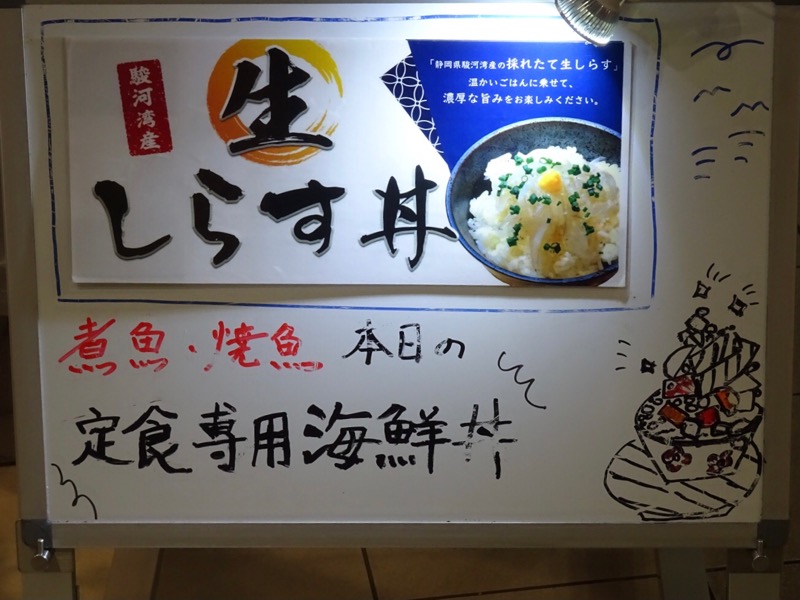 駿河湾産
生
しらす丼
「静岡県駿河湾産の採れたて生しらす」
温かいごはんに乗せて、
濃厚な旨みをお楽しみください。
煮魚・焼魚 本日の
定食専用海鮮丼